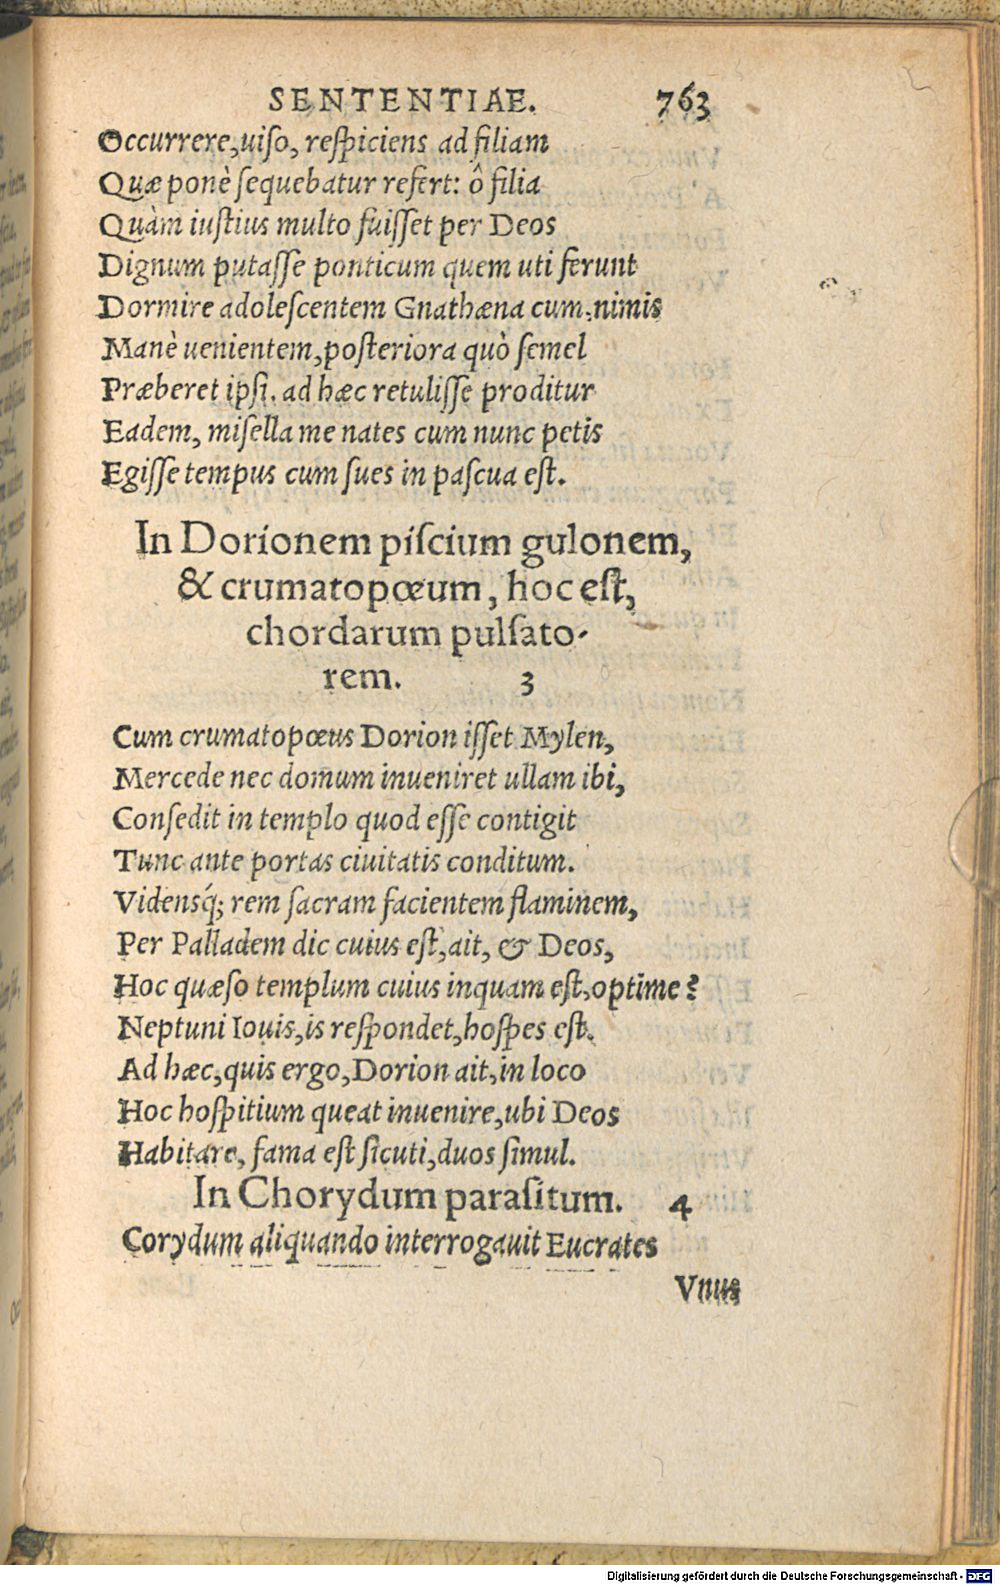 SENTENTIAE. 763
Occurrere, uiſo, reſpiciens ad filiam
Quæ ponè ſequebatur refert: ô filia
Quàm iuſtius multo fuiſſet per Deos
Dignum putaſſe ponticum quem uti ferunt
Dormire adoleſcentem Gnathæna cum, nimis
Manè uenientem, poſteriora quò ſemel
Præberet ipſi. ad hæc retuliſſe proditur
Eadem, miſella me nates cum nunc petis
Egiſſe tempus cum ſues in paſcua eſt.
In Dorionem piſcium gulonem,
& crumatopœum, hoc eſt,
chordarum pulſato-
rem. 3
Cum crumatopœus Dorion iſſet Mylen,
Mercede nec domum inueniret ullam ibi,
Conſedit in templo quod eſſe contigit
Tunc ante portas ciuitatis conditum.
Vidensq́; rem ſacram facientem flaminem,
Per Palladem dic cuius eſt, ait, & Deos,
Hoc quæſo templum cuius inquam eſt, optime?
Neptuni Iouis, is reſpondet, hoſpes eſt.
Ad hæc, quis ergo, Dorion ait, in loco
Hoc hoſpitium queat inuenire, ubi Deos
Habitare, fama eſt ſicuti, duos ſimul.
In Chorydum paraſitum. 4
Corydum aliquando interrogauit Eucrates
Vnus
Digitalisierung gefördert durch die Deutsche Forschungsgemeinschaft - DFG